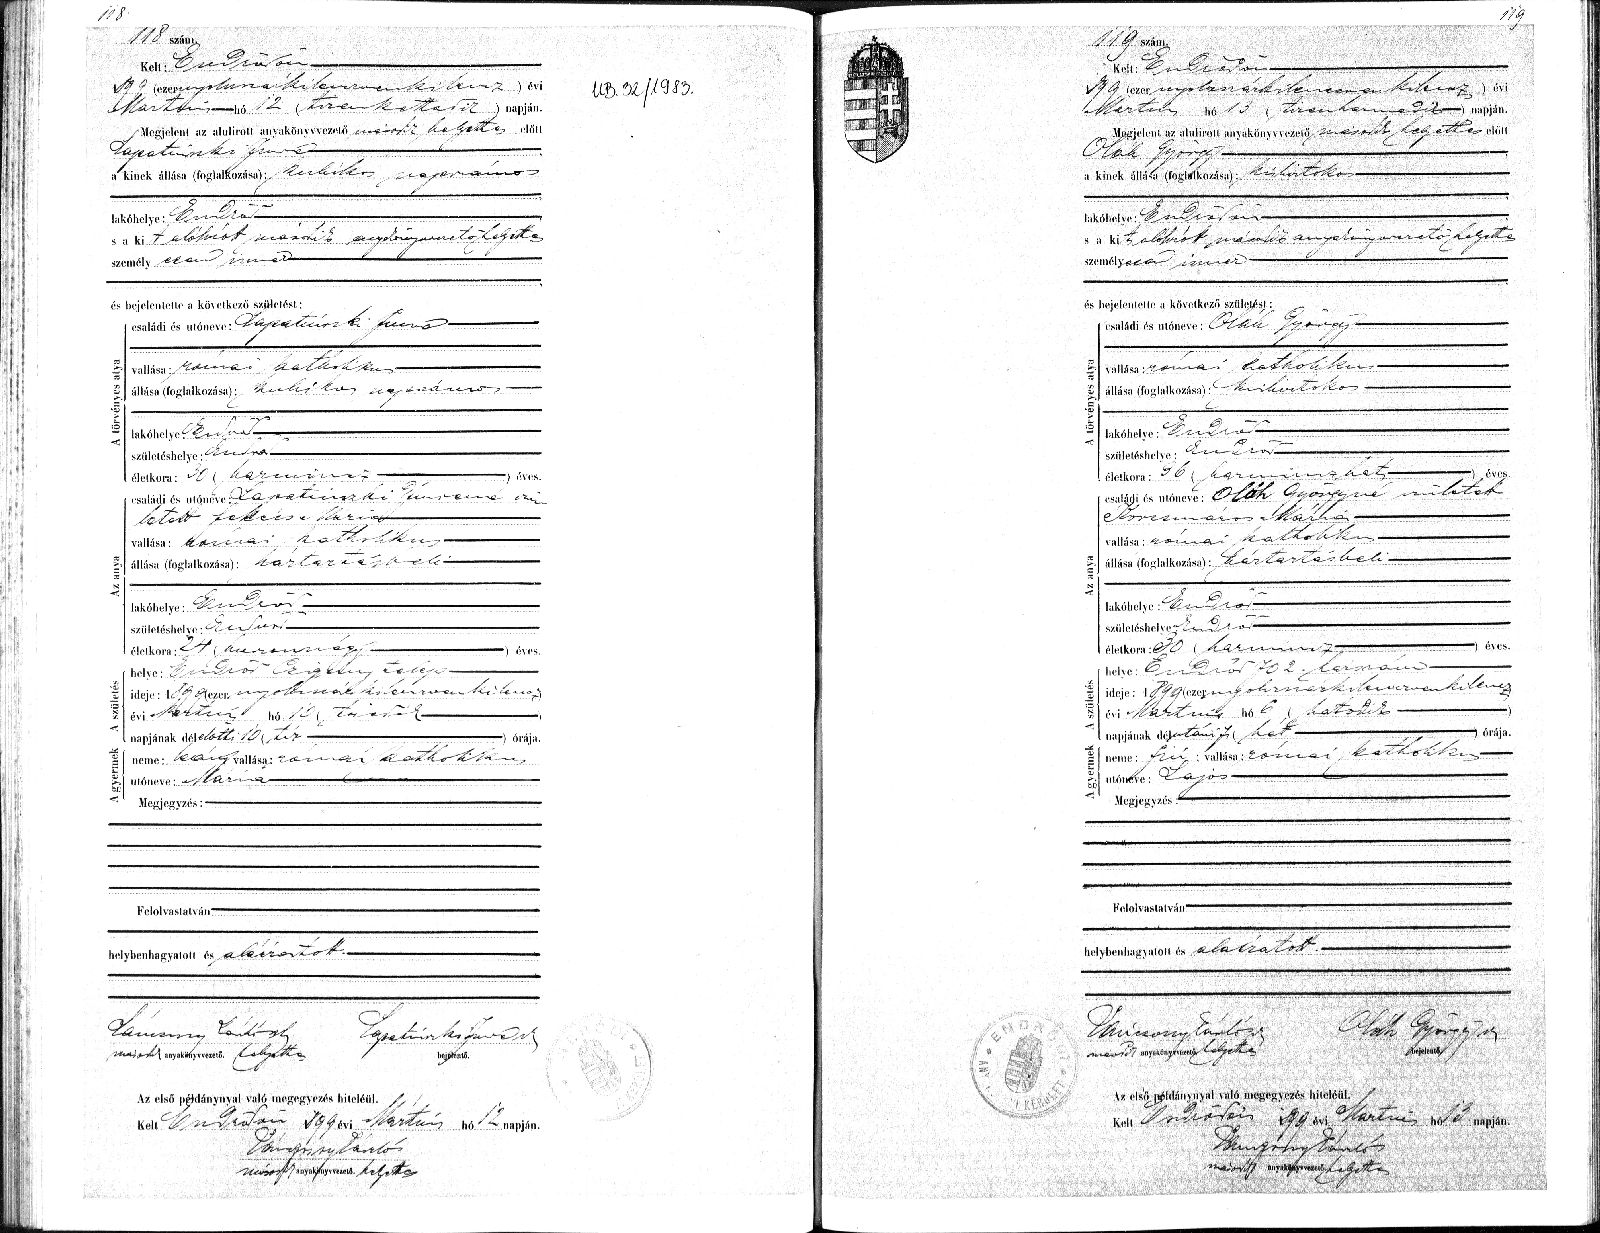 118
118 szám.
Kelt: Endrődön
899 (ezer nyolcszázkilencvenkilenc) évi
Martius hó 12 (tizenkettedik) napján.
Megjelent az alulirott anyakönyvvezető második helyettes előtt
a kinek állása (foglalkozása): kubikos napszámos
lakóhelye: Endrőd
s a kit alólirott második anyakönyvvezető helyettes
személyesen ismer
és bejelentette a következő születést:
A törvényes atya
családi és utóneve:
vallása: római katholikus
állása (foglalkozása): kubikos napszámos
lakóhelye: Endrőd
születéshelye: Endrőd
életkora: 30 (harmincz) éves.
Az anya
családi és utóneve: szü
letett Mária
vallása: római katholikus
állása (foglalkozása): háztartásbeli
lakóhelye: Endrőd
születéshelye: Endrőd
életkora: 24 (huszonnégy) éves.
A születés
helye: Endrőd Czigány telep
ideje: 1899 (ezer nyolcszázkilencvenkilencz
évi Martius hó 10 (tizedik)
napjának délelőtti 10 (tíz) órája.
A gyermek
neme: leány vallása: római katholikus
utóneve: Mária
Megjegyzés:
Felolvastatván
helybenhagyatott és aláiratott.
második anyakönyvvezető. helyettes bejelentő.
Az első példánynyal való megegyezés hiteléül.
Kelt Endrődön 899 évi Mártius hó 12 napján.
második anyakönyvvezető. helyettes
UB. 32/1983.
119
119 szám.
Kelt: Endrődön
899 (ezer nyolcszázkilencvenkilencz) évi
Martius hó 13 (tizenharmadik) napján.
Megjelent az alulirott anyakönyvvezető második helyettes előtt
Oláh György
a kinek állása (foglalkozása): kisbirtokos
lakóhelye: Endrődön
s a kit alólirott második anyakönyvvezető helyettes
személyesen ismer
és bejelentette a következő születést:
A törvényes atya
családi és utóneve: Oláh György
vallása: római katholikus
állása (foglalkozása): kisbirtokos
lakóhelye: Endrőd
születéshelye: Endrőd
életkora: 36 (harminczhat) éves.
Az anya
családi és utóneve: Oláh Györgyné született
Korcsmáros Mária
vallása: római katholikus
állása (foglalkozása): háztartásbeli
lakóhelye: Endrőd
születéshelye: Endrőd
életkora: 30 (harmincz) éves.
A születés
helye: Endrőd 702. házszám
ideje: 1899 (ezer nyolcszázkilencvenkilencz
évi Martius hó 6 (hatodik)
napjának délutáni (hat) órája.
A gyermek
neme: fiú vallása: római katholikus
utóneve: Lajos
Megjegyzés:
Felolvastatván
helybenhagyatott és aláiratott.
Oláh György
második anyakönyvvezető helyettes bejelentő.
Az első példánynyal való megegyezés hiteléül.
Kelt Endrődön 899 évi Martius hó 13 napján.
második anyakönyvvezető helyettes